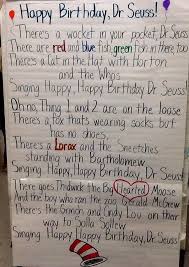 Happy Birthday, Dr Seuss!
There's a wocket in your pocket, Dr Seuss
There are red and blue fish, green fish in there, too
There's a Cat in the Hat with Horton
and the Whos
Singing Happy, Happy Birthday, Dr. Seuss!
Oh no, Thing 1 and 2 are on the loose
There's a fox that's wearing socks but
has no shoes,
There's a Lorax and the Sneetches
standing with Bartholomew
Singing Happy Happy Birthday, Dr. Seuss!
There goes Thidwick the Big Hearted Moose
And the boy who ran the zoo Gerald McGrew
There's the Grinch and Cindy Lou on their
way to Solla Sollew
Singing Happy Happy Birthday, Dr. Seuss!